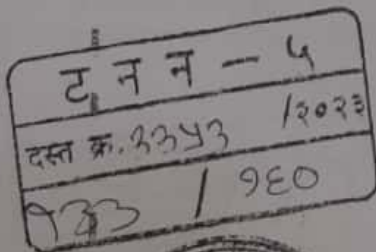 ट न न - ५
दस्त क्र. ३३५३ /२०२३
१३३ / १६०